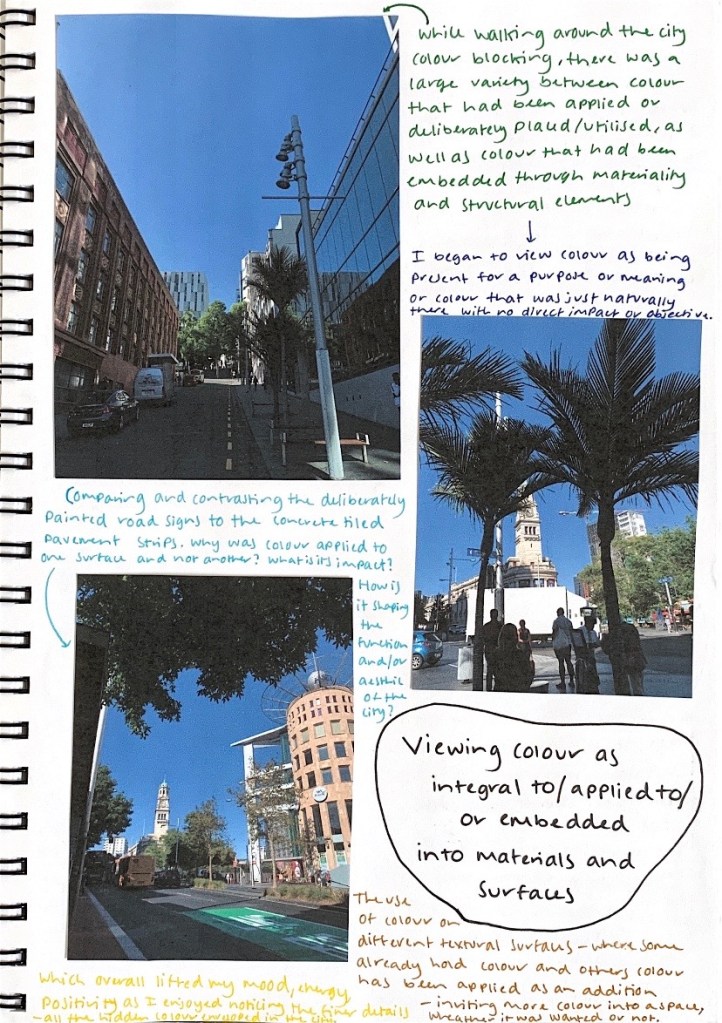 while walking around the city
colour blocking, there was a
large variety between colour
that had been applied or
deliberately placed/utilised, as
well as colour that had been
embedded through materiality
and structural elements
I began to view colour as being
present for a purpose or meaning
or colour that was just naturally
there with no direct impact or objective.
Comparing and contrasting the deliberately
painted road signs to the concrete tiled
pavement strips. Why was colour applied to
one surface and not another? What is its impact?
How is
it shaping
the
function
and/or
aesthic
of the
city?
Viewing colour as
integral to/applied to/
or embedded
into materials and
surfaces
The use
of colour on
different textural surfaces - where some
already hold colour and others colour
has been applied as an addition
- inviting more colour into a space,
wheather it was wanted or not.
which overall lifted my mood, energy
positivity as I enjoyed noticing the finer details
- all the hidden colour enveloped in the city.